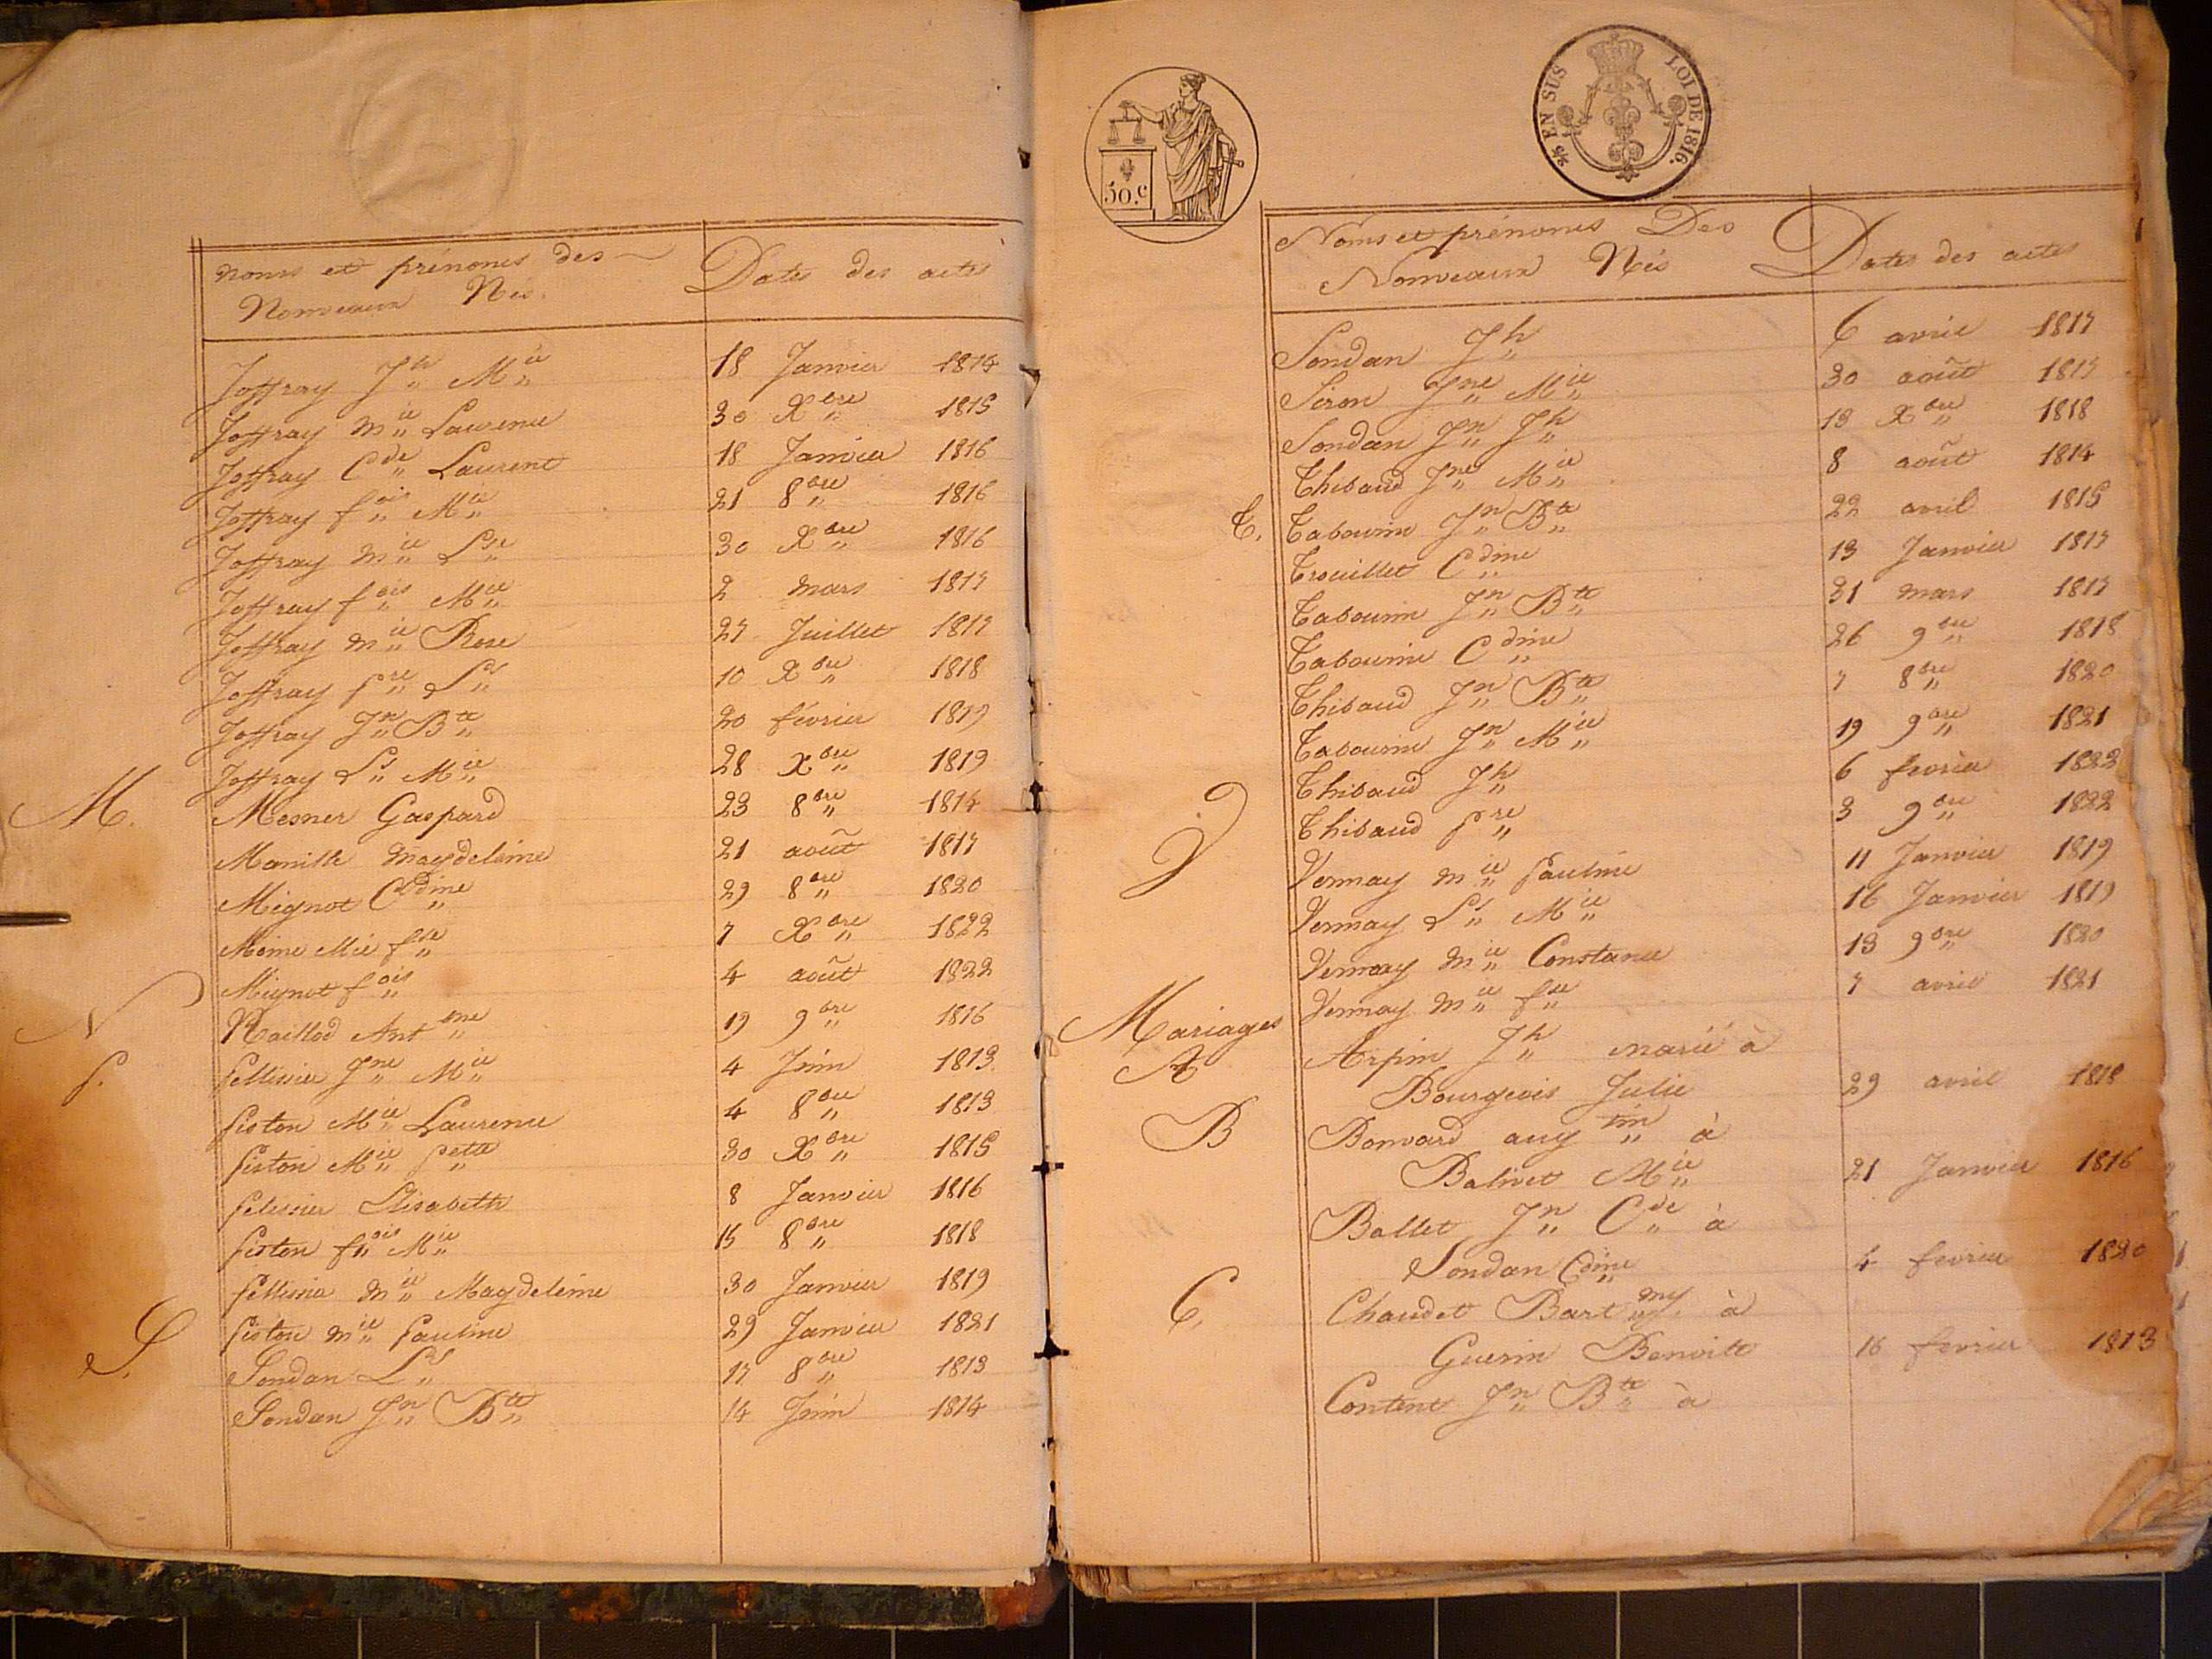 noms et prénoms des
Nouveaux Nés.
Dates des actes
Joffray Jh Mie 18 Janvier 1814
Joffray mie Laurence 30 Xbre 1815
Joffray Cde Laurent 18 Janvier 1816
Joffray fois Mie 21 8bre 1816
Joffray mie Lse 30 Xbre 1816
Joffray fois Mie 2 mars 1817
Joffray mie Rose 27 Juillet 1817
Joffray Pre Ls 10 Xbre 1818
Joffray Jn Bte 20 février 1819
Joffray Ls Mie 28 Xbre 1819
M. Mesner Gaspard 23 8bre 1814
magdeleine 21 août 1817
Mignot Cdine 29 8bre 1820
Moine Mie fse 7 Xbre 1822
Mignot fois 4 août 1822
N Naillod Antone 19 9bre 1816
P. Pellissier Jne Mie 4 Juin 1813
Piston Mie Laurence 4 8bre 1813
Piston Mie Pette 30 Xbre 1815
Pelissier Elisabeth 8 Janvier 1816
Piston fois Mie 15 8bre 1818
Pellissier mie Magdeleine 30 Janvier 1819
Piston mie Pauline 29 Janvier 1821
S. Sondan Ls 17 8bre 1813
Sondan Jn Bte 14 Juin 1814
50.c
EN SUS LOI DE 1816.
Noms et prénoms Des
Nouveaux Nés
Dates des actes
Sondan Jh 6 avril 1817
Siron Jne Mie 30 août 1817
Sondan Jn Jh 13 Xbre 1818
Thibaud Jne Mie 8 août 1814
T. Tabourin Jn Bte 22 avril 1815
Trouillet Cdine 13 Janvier 1817
Tabourin Jn Bte 31 mars 1817
Tabourin Cdine 26 9bre 1818
Thibaud Jn Bte 7 8bre 1820
Tabourin Jn Mie 19 9bre 1821
Thibaud Jh 6 fevrier 1822
Thibaud Pre 3 9bre 1822
V Vernay mie Pauline 11 Janvier 1819
Vernay Ls Mie 16 Janvier 1819
Vernay mie Constance 13 9bre 1820
Vernay mie fse 7 avril 1821
Mariages
A Arpin Jh marié à
Bourgeois Julie 29 avril 1818
B Bonvard augtin à
Balivet Mie 21 Janvier 1816
Ballet Jn Cde à
Sondan Cdine 4 fevrier 1820
C. Chaudet Bartmy à
Guerin Benoite 16 fevrier 1813
Content Jn Bte à